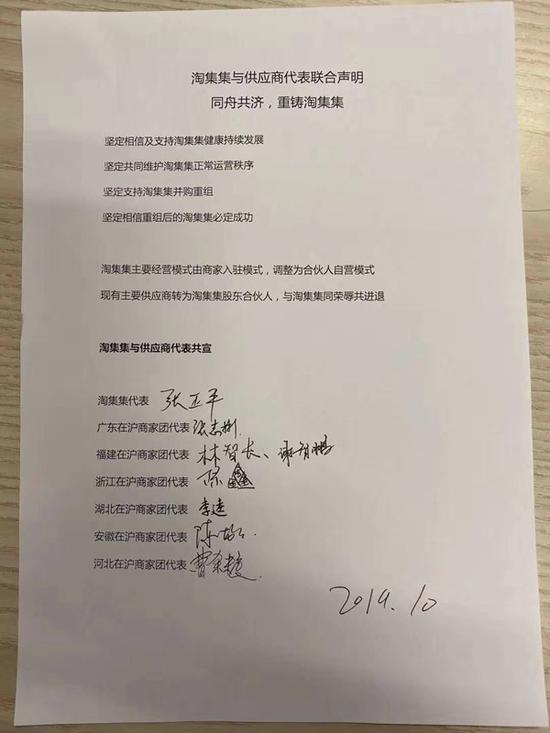 淘集集与供应商代表联合声明
同舟共济，重铸淘集集
坚定相信及支持淘集集健康持续发展
坚定共同维护淘集集正常运营秩序
坚定支持淘集集并购重组
坚定相信重组后的淘集集必定成功
淘集集主要经营模式由商家入驻模式，调整为合伙人自营模式
现有主要供应商转为淘集集股东合伙人，与淘集集同荣辱共进退
淘集集与供应商代表共宣
淘集集代表 张正平
广东在沪商家团代表
福建在沪商家团代表 林智长、
浙江在沪商家团代表
湖北在沪商家团代表 李逵
安徽在沪商家团代表 陈
河北在沪商家团代表 曹
2019.10